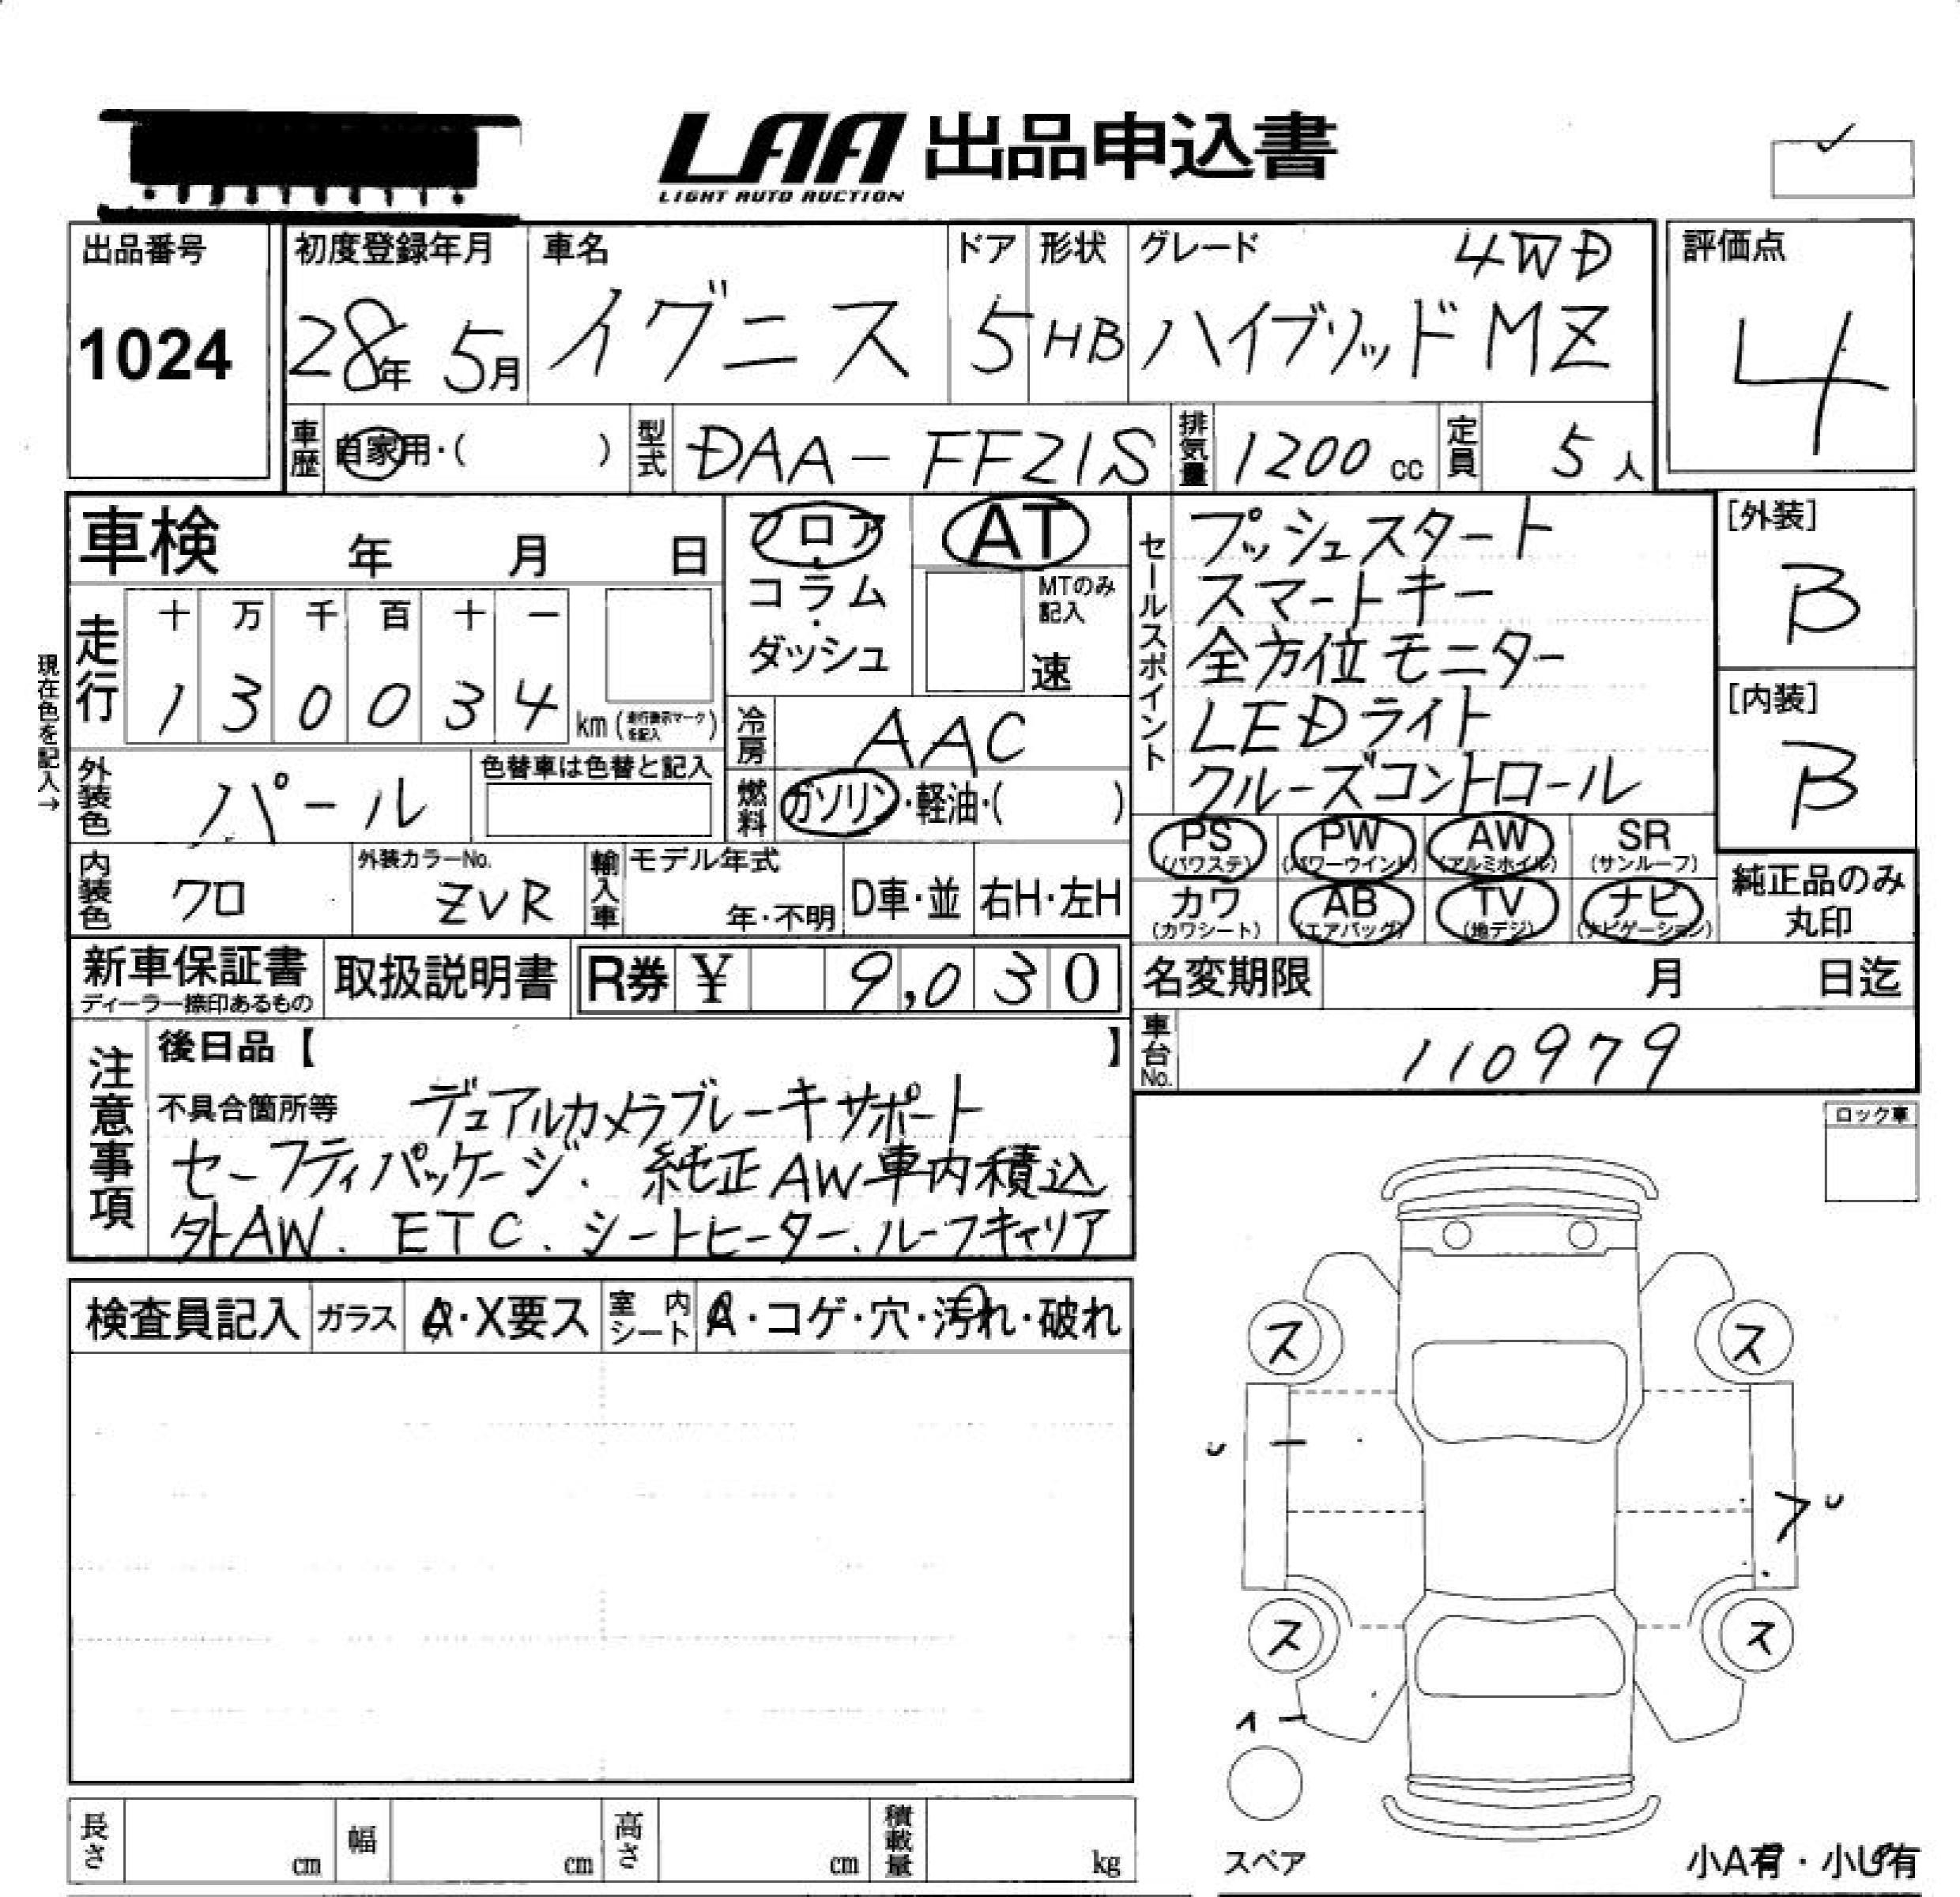 LAA 出品申込書
LIGHT AUTO AUCTION
出品番号 初度登録年月 車名 ドア 形状 グレード 4WD 評価点
1024 28年 5月 イグニス 5 HB ハイブリッドMZ 4
車歴 自家用・( ) 型式 DAA-FF21S 排気量 1200 cc 定員 5 人
車検 年 月 日
フロア・コラム・ダッシュ
AT
MTのみ記入
速
セールスポイント
プッシュスタート
スマートキー
全方位モニター
LEDライト
クルーズコントロール
[外装]
B
[内装]
B
現在色を記入→
走行 十 万 千 百 十 一
1 3 0 0 3 4 km (走行表示マークを記入)
冷房 AAC
外装色 パール 色替車は色替と記入
燃料 ガソリン・軽油・( )
PS (パワステ) PW (パワーウインド) AW (アルミホイル) SR (サンルーフ)
カワ (カワシート) AB (エアバッグ) TV (地デジ) ナビ (ナビゲーション)
純正品のみ丸印
内装色 クロ 外装カラーNo. ZVR 輸入車 モデル年式 年・不明 D車・並 右H・左H
新車保証書 ディーラー捺印あるもの 取扱説明書 R券 ¥ 9,030
名変期限 月 日迄
車台No. 110979
注意事項
後日品【 】
不具合箇所等 デュアルカメラブレーキサポート
セーフティパッケージ、純正AW車内積込
外AW、ETC、シートヒーター、ルーフキャリア
ロック車
検査員記入 ガラス A・X要ス 室内シート A・コゲ・穴・汚れ・破れ
ス ス
ス ス
長さ cm 幅 cm 高さ cm 積載量 kg
スペア
小A有・小U有